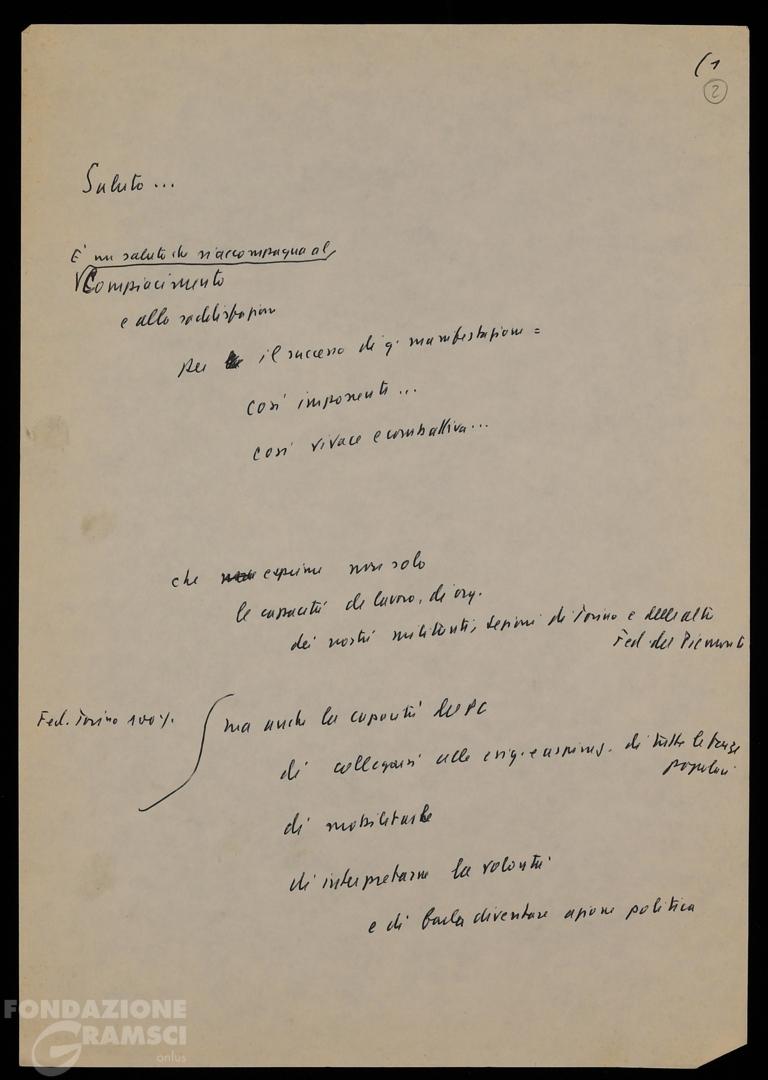 (1
2
Saluto...
E' un saluto che si accompagna al
Compiacimento
e alla soddisfazione
per il successo di q. manifestazione =
così imponente...
così vivace e combattiva...
che esprime non solo
le capacità di lavoro, di org.
dei nostri militanti, sezioni di Torino e delle altre
Fed. del Piemonte
Fed. Torino 100%
ma anche la capacità del PC
di collegarsi alle esig. e aspiraz. di tutte le forze
popolari
di mobilitarle
di interpretarne la volontà
e di farla diventare azione politica
FONDAZIONE
GRAMSCI
onlus